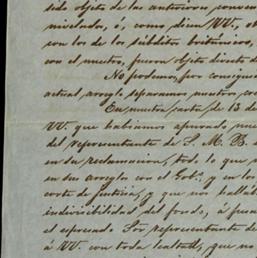 sido objeto de las anteriores conven
nivelados, ó, como dicen VV., ob
con los de los súbditos británicos,
con el nuestro, fueron objeto directo d
No podemos, por consigui
actual arreglo separarnos nuestros co
En nuestra carta de 13 de
VV. que habiamos apurado nue
del representante de S. M. B.
en su reclamacion, todo lo que
en sus arreglos con el Gobo. y en los
corte de justicia, y que nos hallá
indivisibilidad del fondo, á fue
el espresado Sor representante de
á VV. con toda lealtad, que no